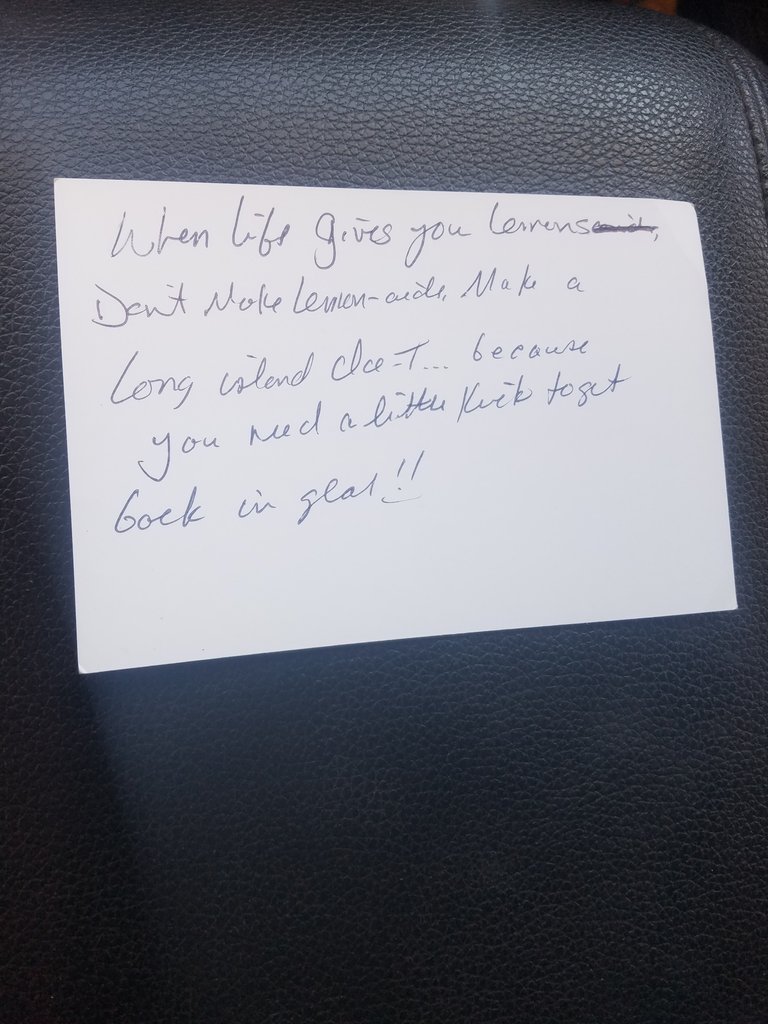 When life gives you lemons,
Don't Make Lemon-aide, Make a
Long island Ice-T... because
you need a little Kick to get
back in gear!!